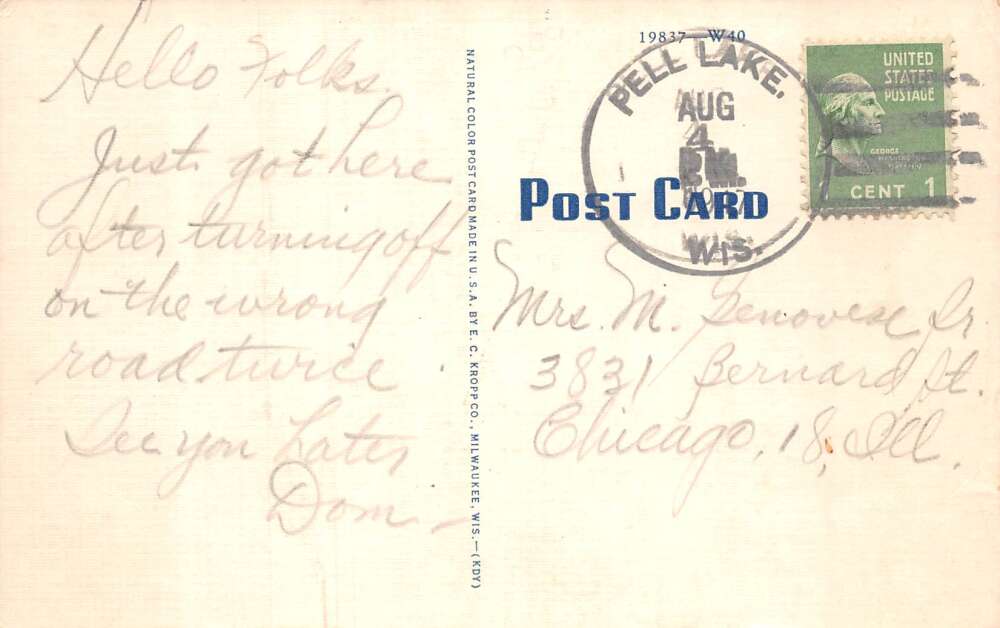 Hello Folks.
Just got here
after turning off
on the wrong
road twice.
See you Later
Dom.
NATURAL COLOR POST CARD MADE IN U.S.A. BY E. C. KROPP CO., MILWAUKEE, WIS.—(KDY)
19837—W40
PELL LAKE,
AUG
4
P.M.
WIS.
UNITED
STATES
POSTAGE
GEORGE
WASHINGTON
CENT 1
POST CARD
Mrs. M. Genovese Jr.
3831 Bernard St.
Chicago, 18, Ill.